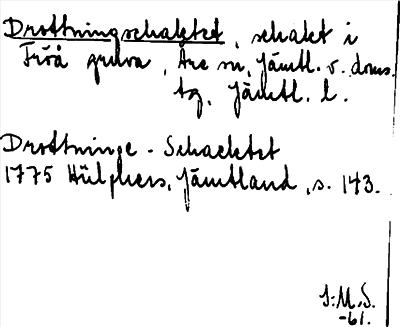 Drottningschaktet, schakt i
Fröå gruva, Åre sn, Jämtl. v. doms.
tg, Jämtl. l.
Drottninge-Schacktet
1775 Hülphers, Jämtland, s. 143.
S:M.S.
-61.